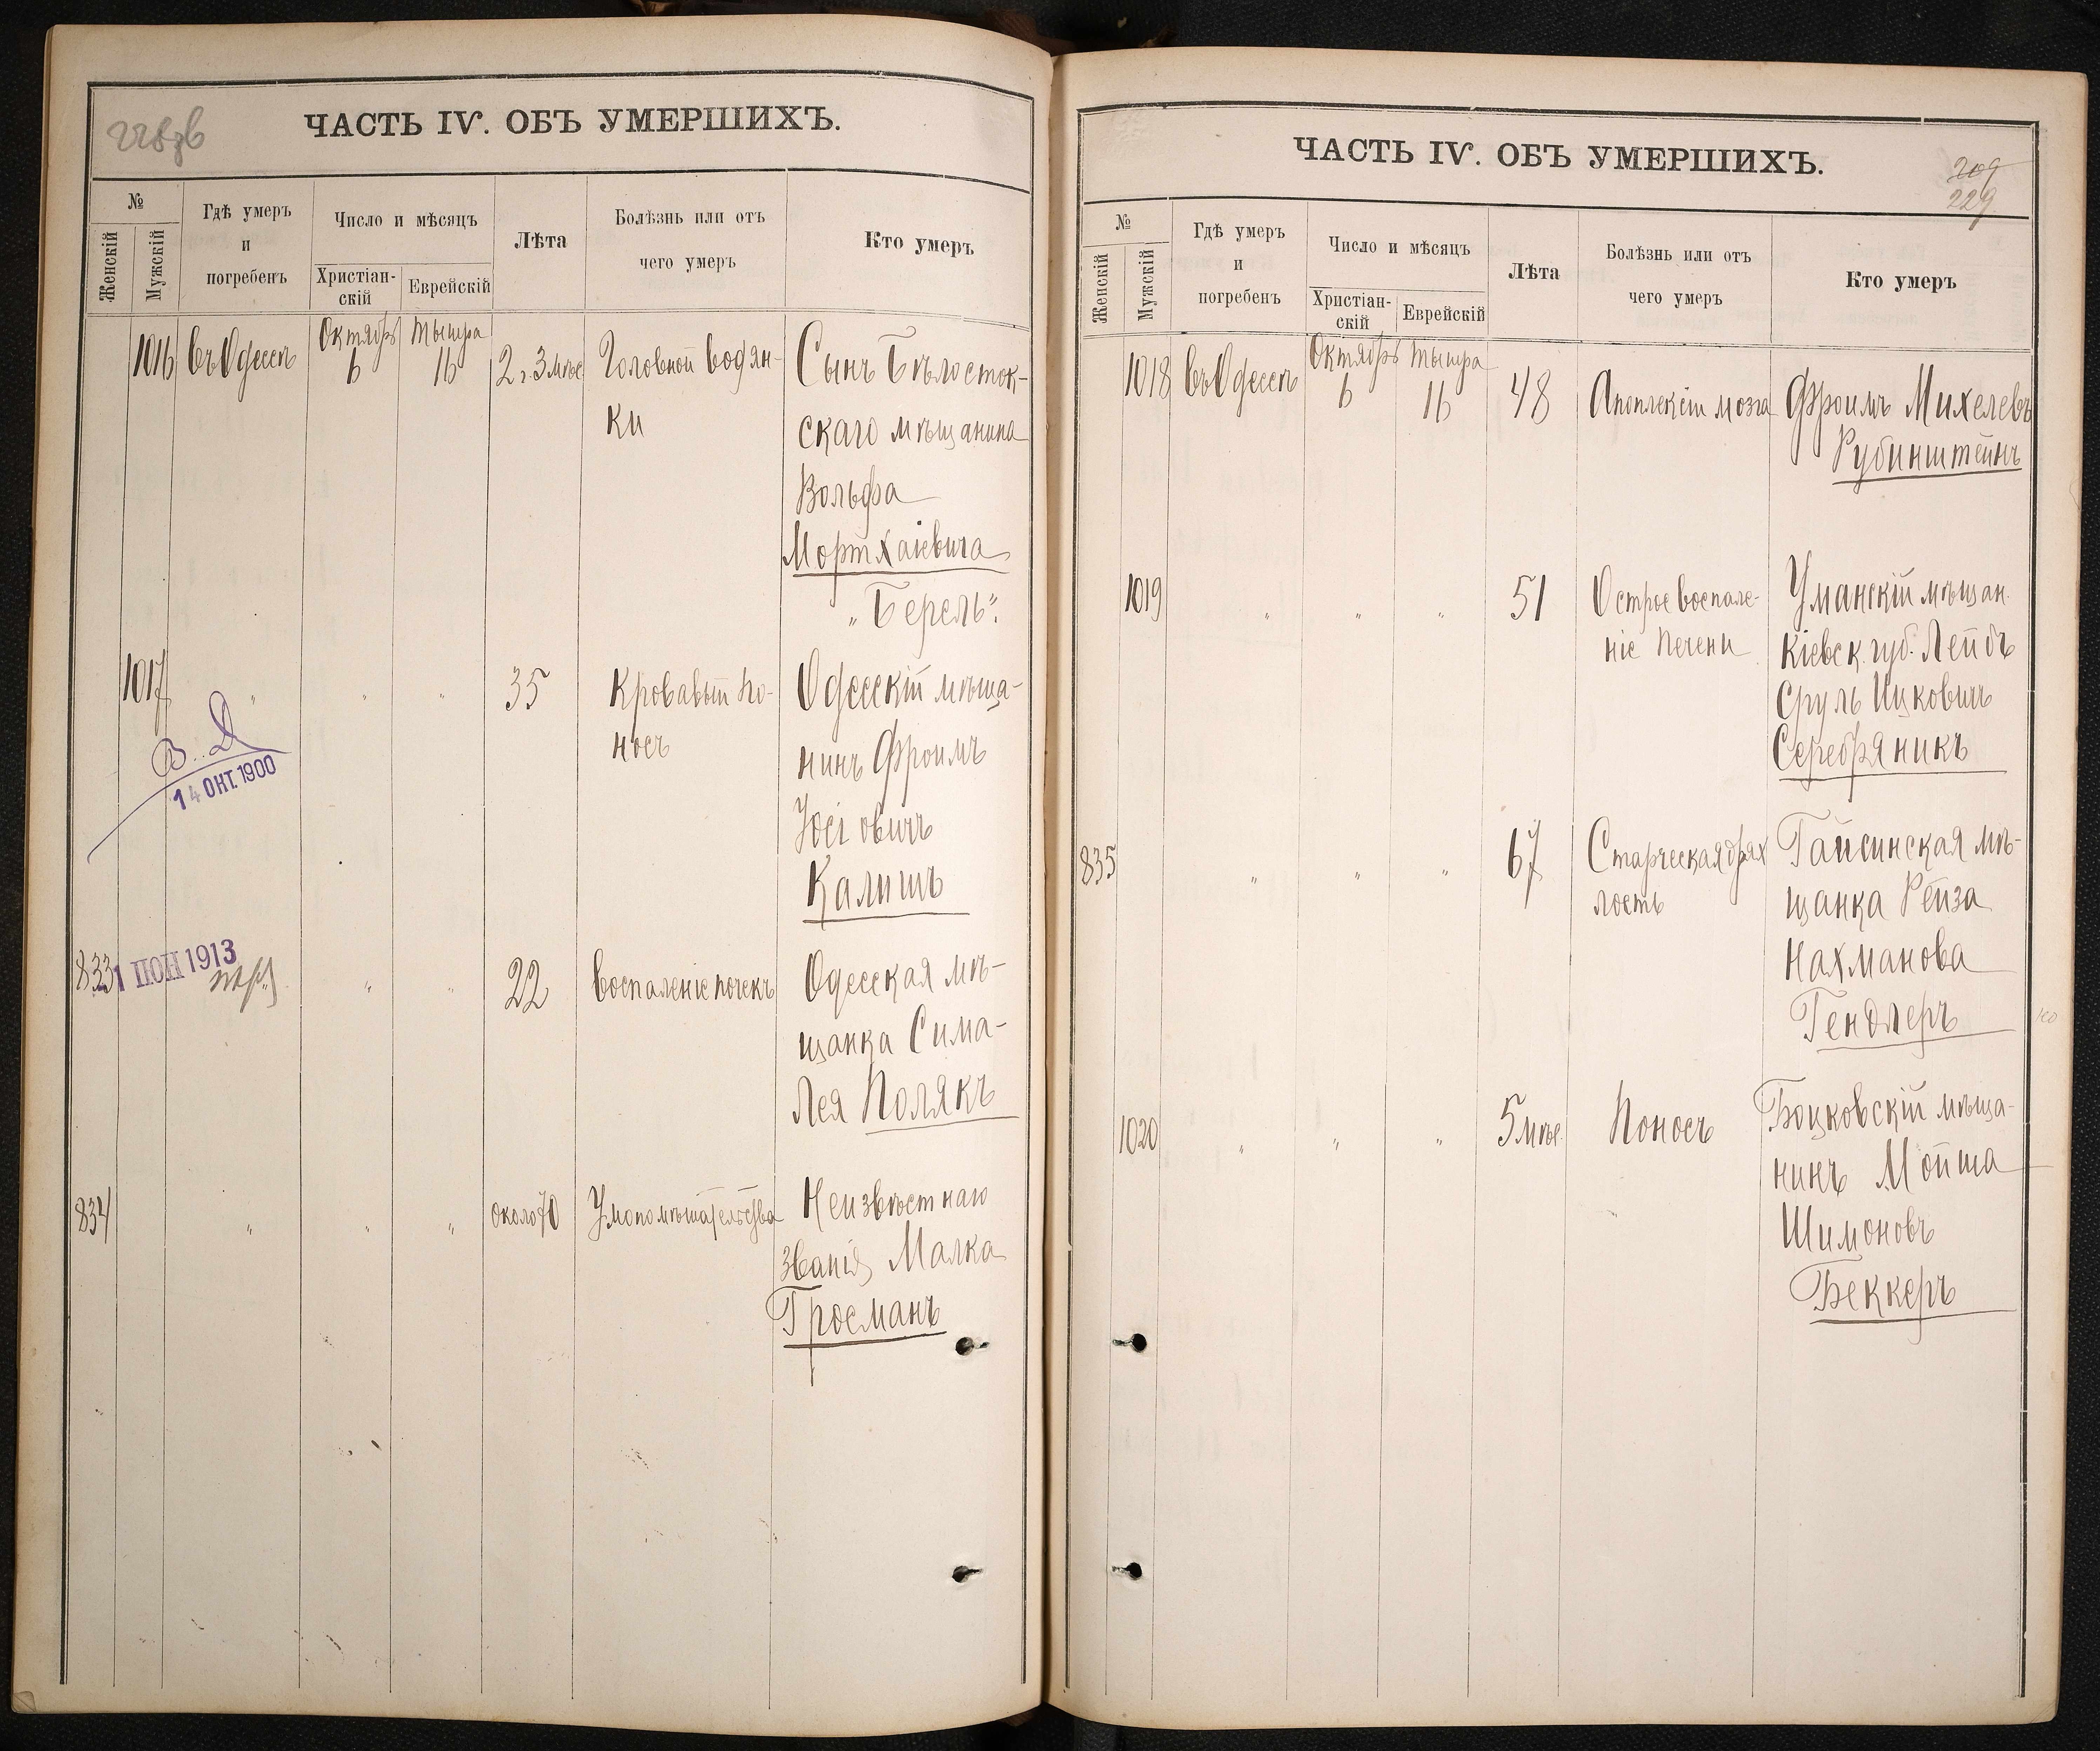 ЧАСТЬ IV. ОБЪ УМЕРШИХЪ.
№
Женскій
Мужскій
Гдѣ умеръ
и
погребенъ
Число и мѣсяцъ
Христіан-
скій
Еврейскій
Лѣта
Болѣзнь или отъ
чего умеръ
Кто умеръ
Октябрь Тышра
1016 Въ Одессѣ 6 16 2 г. 3 мѣс Головной водян- Сынъ Бѣлосток-
ки скаго мѣщанина
Вольфа
Мортхаіевича
„Берель“.
1017 " " " 35 Кровавый по- Одесскій мѣща-
носъ нинъ Фроимъ
В. Д.
14 ОКТ. 1900
Іосіовичъ
Калишъ
833 " " 22 Воспаленіе почекъ Одесская мѣ-
1 ІЮН 1913
щанка Сима-
Лея Полякъ
834 " " " около 70 Умопомѣшательства Неизвѣстнаго
званія Малка
Гросманъ
ЧАСТЬ IV. ОБЪ УМЕРШИХЪ.
209
229
№
Женскій
Мужскій
Гдѣ умеръ
и
погребенъ
Число и мѣсяцъ
Христіан-
скій
Еврейскій
Лѣта
Болѣзнь или отъ
чего умеръ
Кто умеръ
Октябрь Тышра
1018 Въ Одессѣ 6 16 48 Апоплексіи мозга Фроимъ Михелевъ
Рубинштейнъ
1019 " " " 51 Острое воспале- Уманскій мѣщан.
ніе печени Кіевск. губ. Лейбъ
Сруль Ицковичъ
Серебряникъ
835 " " " 67 Старческая дрях Гайсинская мѣ-
лость щанка Рейза
Нахманова
Гендлеръ
1020 " " " 5 мѣс. Поносъ Боцковскій мѣща-
нинъ Мойша
Шимоновъ
Беккеръ